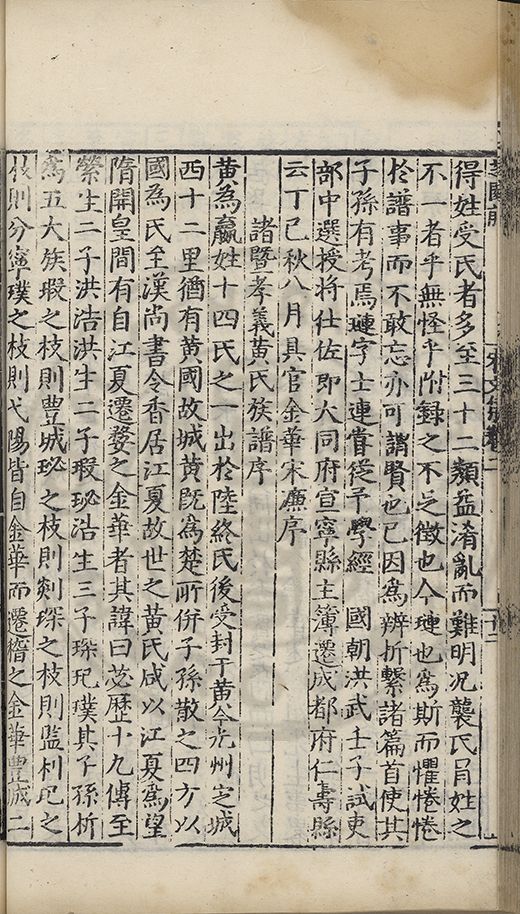 得姓受氏者多至三十二類益淆亂而難明况襲氏冐姓之
不一者乎無怪乎附録之不足徴也今璉也爲斯而懼惓惓
於譜事而不敢忘亦可謂賢也已因爲辨折繫諸篇首使其
子孫有考焉璉字士連嘗從予學經 國朝洪武壬子試吏
部中選授將仕佐郎大同府宣寧縣主簿遷成都府仁壽縣
云丁巳秋八月具官金華宋濂序
諸暨孝義黄氏族譜序
黄為嬴姓十四氏之一出於陸終氏後受封于黄今光州定城
西十二里猶有黄國故城黄旣爲楚所併子孫散之四方以
國為氏至漢尚書令香居江夏故世之黄氏咸以江夏爲望
隋開皇間有自江夏遷婺之金華者其諱曰苾歷十九傳至
滎生二子洪浩洪生二子瑕珌浩生三子琛玘璞其子孫析
爲五大族瑕之枝則豐城珌之枝則剡琛之枝則監利玘之
枝則分寧璞之枝則弋陽皆自金華而遷稽之金華豐城二